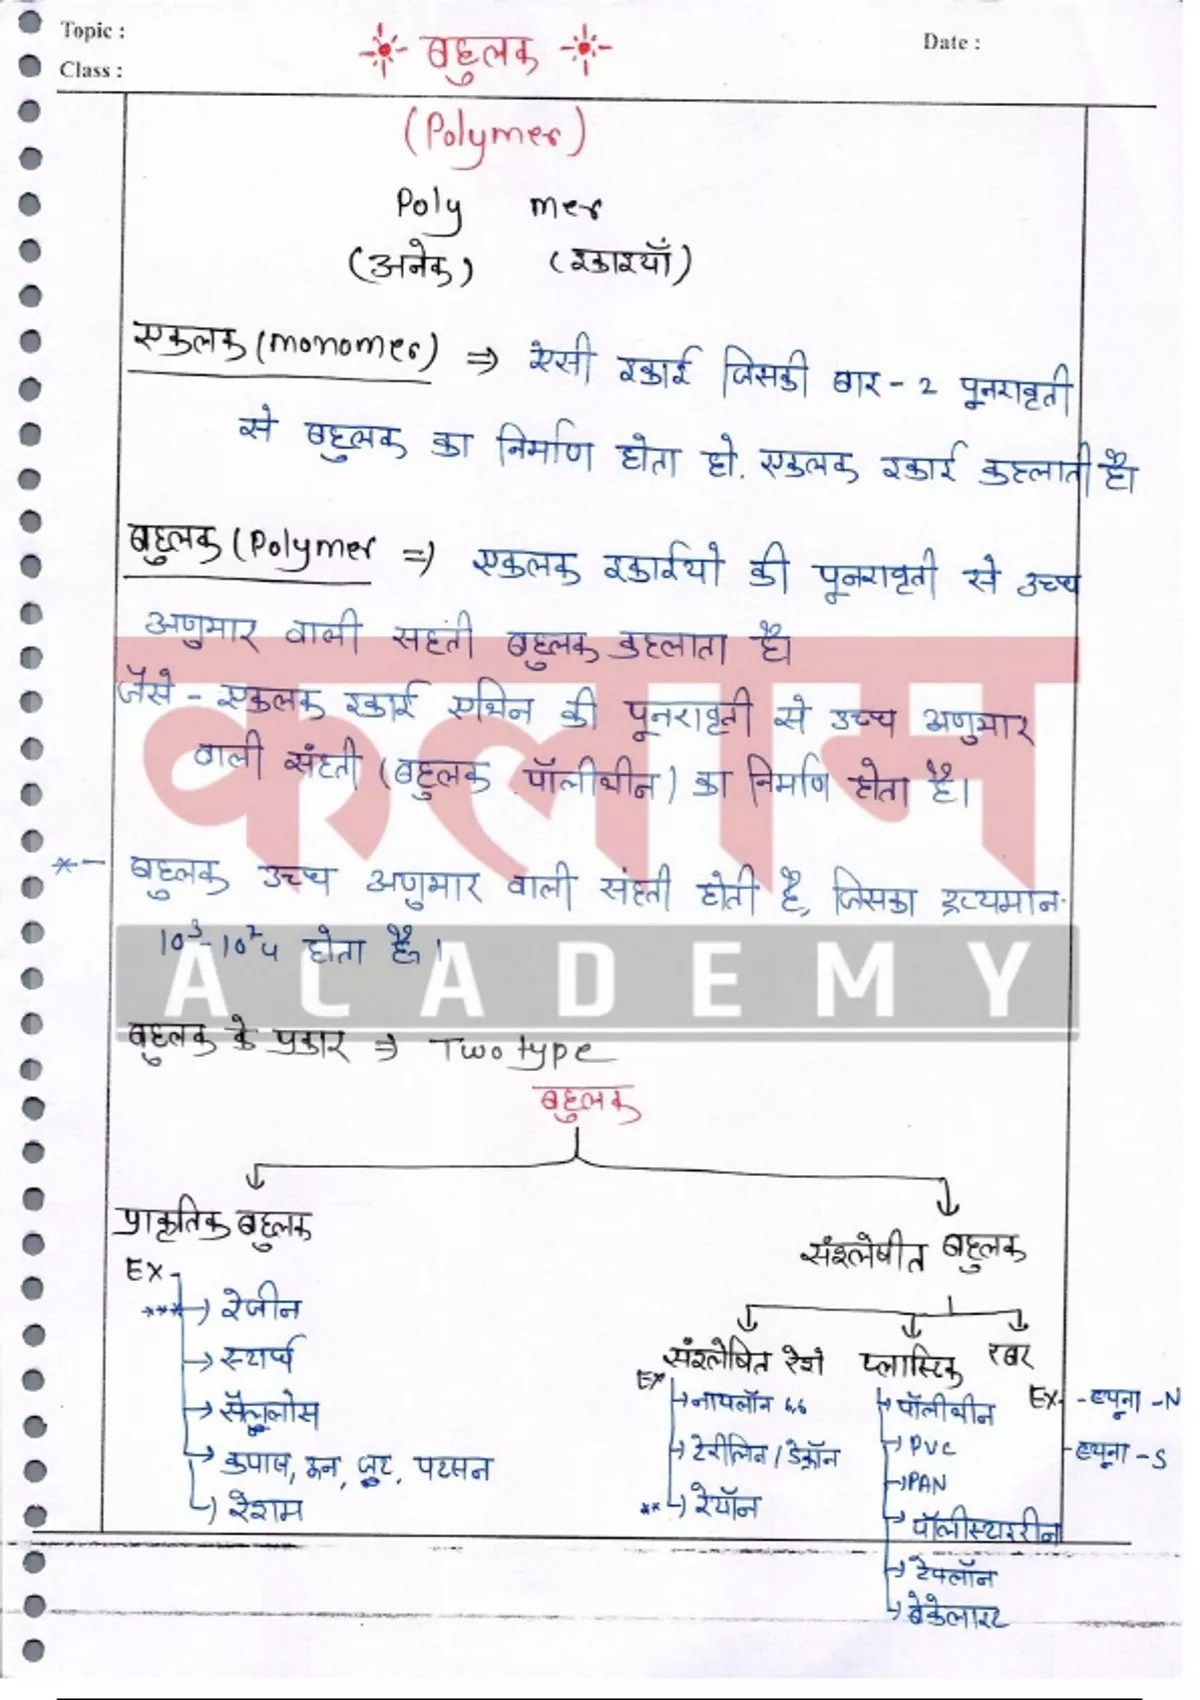 Topic :
Class :
Date :
बहुलक
(Polymer)
Poly mer
(अनेक) (इकाइयाँ)
एकलक (monomer) ⇒ ऐसी इकाई जिसकी बार - 2 पूनरावृती
से बहुलक का निर्माण होता हो. एकलक इकाई कहलाती है।
बहुलक (Polymer ⇒) एकलक इकाईयो की पूनरावृती से उच्च
अणुभार वाली सहती बहुलक कहलाता है।
जैसे - एकलक इकाई एथिन की पूनरावृती से उच्च अणुभार
वाली संहती (बहुलक पॉलीथीन) का निर्माण होता है।
*- बहुलक उच्च अणुभार वाली संहती होती है, जिसका द्रव्यमान
10³-10⁷u होता है।
कलाम
ACADEMY
बहुलक के प्रकार ⇒ Two type
बहुलक
प्राकृतिक बहुलक
संश्लेषीत बहुलक
Ex-
*** → रेजीन
→ स्टार्च
→ सैलुलोस
→ कपास, ऊन, जुट, पटसन
→ रेशम
संश्लेषित रेशे प्लास्टिक रबर
Ex → नायलॉन 6,6
→ टेरीलिन / डेक्रॉन
** → रेयॉन
→ पॉलीथीन
→ PVC
→ PAN
→ पॉलीस्टाइरीन
→ टेफ्लॉन
→ बेकेलाइट
Ex - ब्यूना - N
- ब्यूना - S